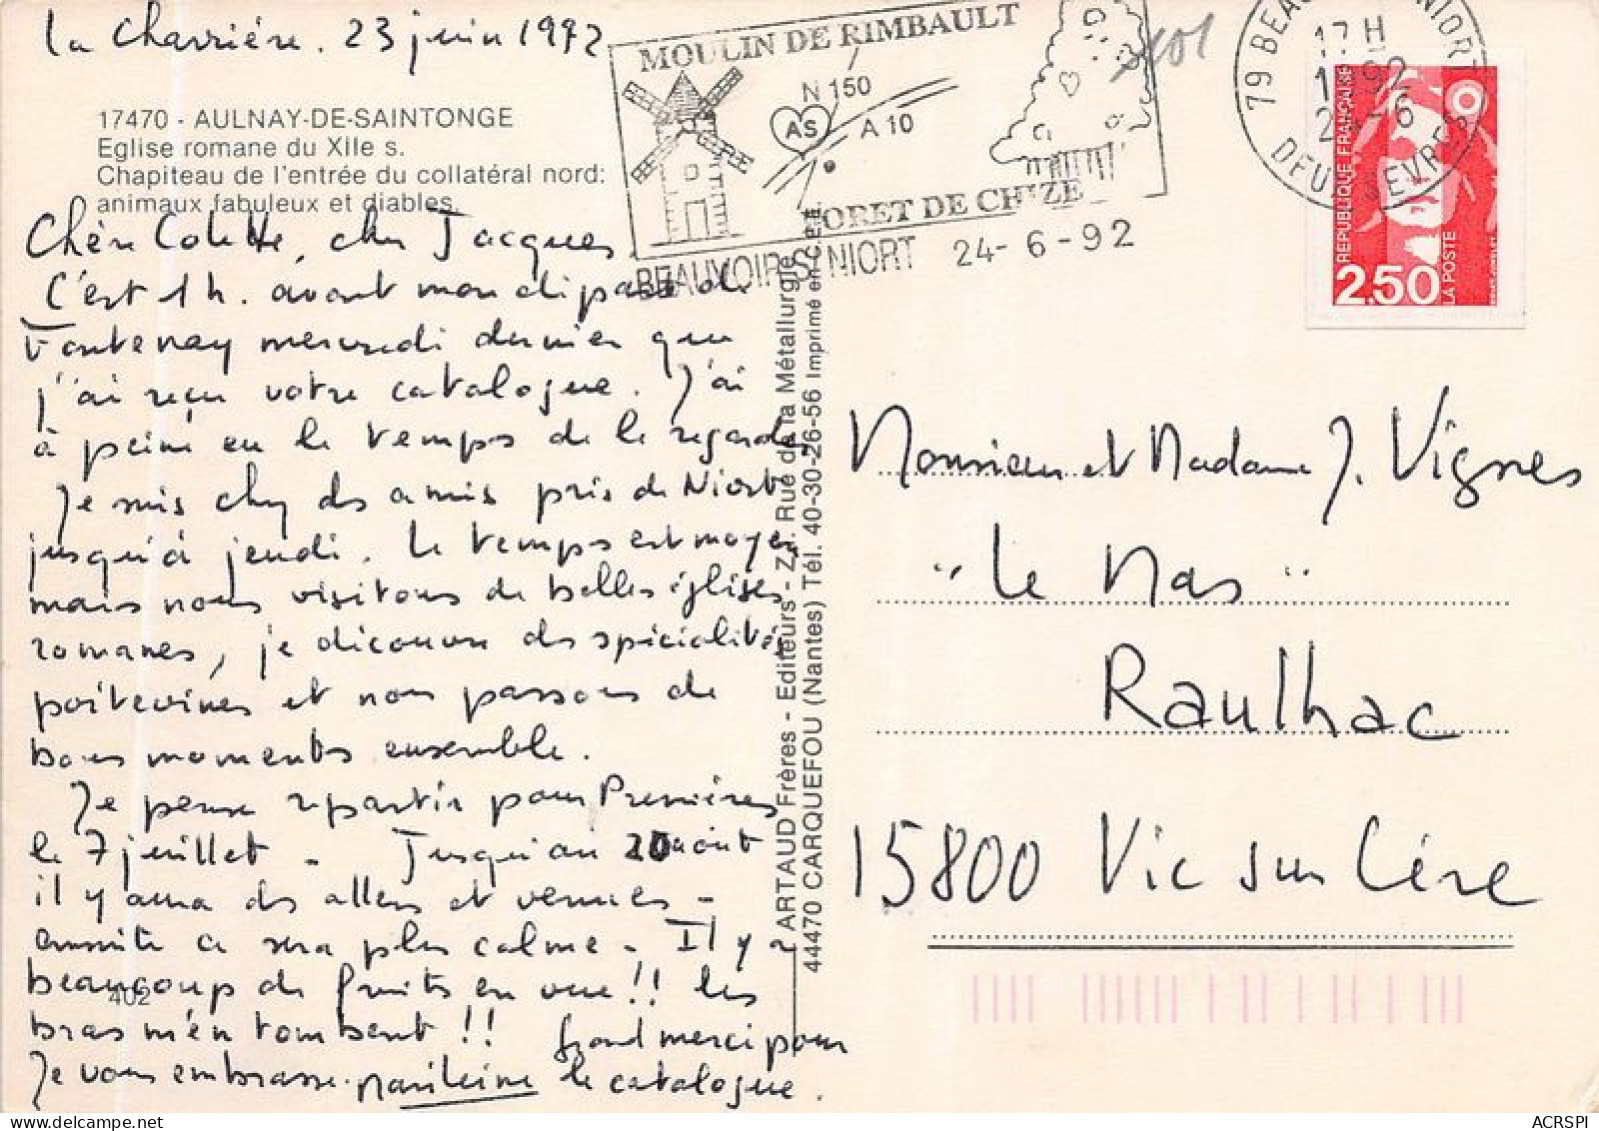 La Charrière. 23 juin 1992
17470 - AULNAY-DE-SAINTONGE
Eglise romane du XIIe s.
Chapiteau de l'entrée du collatéral nord:
animaux fabuleux et diables.
Chère Colette, cher Jacques
C'est 1 h. avant mon départ de
Fontenay mercredi dernier que
j'ai reçu votre catalogue. J'ai
à peine eu le temps de le regarder
Je suis chez des amis près de Niort
jusqu'à jeudi. Le temps est moyen
mais nous visitons de belles églises
romanes, je découvre des spécialités
poitevines et nous passons de
bons moments ensemble.
Je pense repartir pour Premières
le 7 juillet - Jusqu'au 20 août
il y aura des allers et venues -
ensuite ce sera plus calme - Il y a
beaucoup de fruits en vue!! les
bras m'en tombent!! Grand merci pour
Je vous embrasse. le catalogue.
402
MOULIN DE RIMBAULT
N 150
AS
A 10
FORET DE CHIZE
BEAUVOIR S/ NIORT 24-6-92
79 BEAU NIORT
17 H
1992
24-6
DEUX SEVRES
REPUBLIQUE FRANÇAISE
2.50
LA POSTE
ARTAUD Frères - Editeurs - Z.I. Rue de la Métallurgie
44470 CARQUEFOU (Nantes) Tél. 40-30-26-56 Imprimé en C.E.E.
Monsieur et Madame J. Vignes
"Le Mas"
Raulhac
15800 Vic sur Cère
ACRSPI